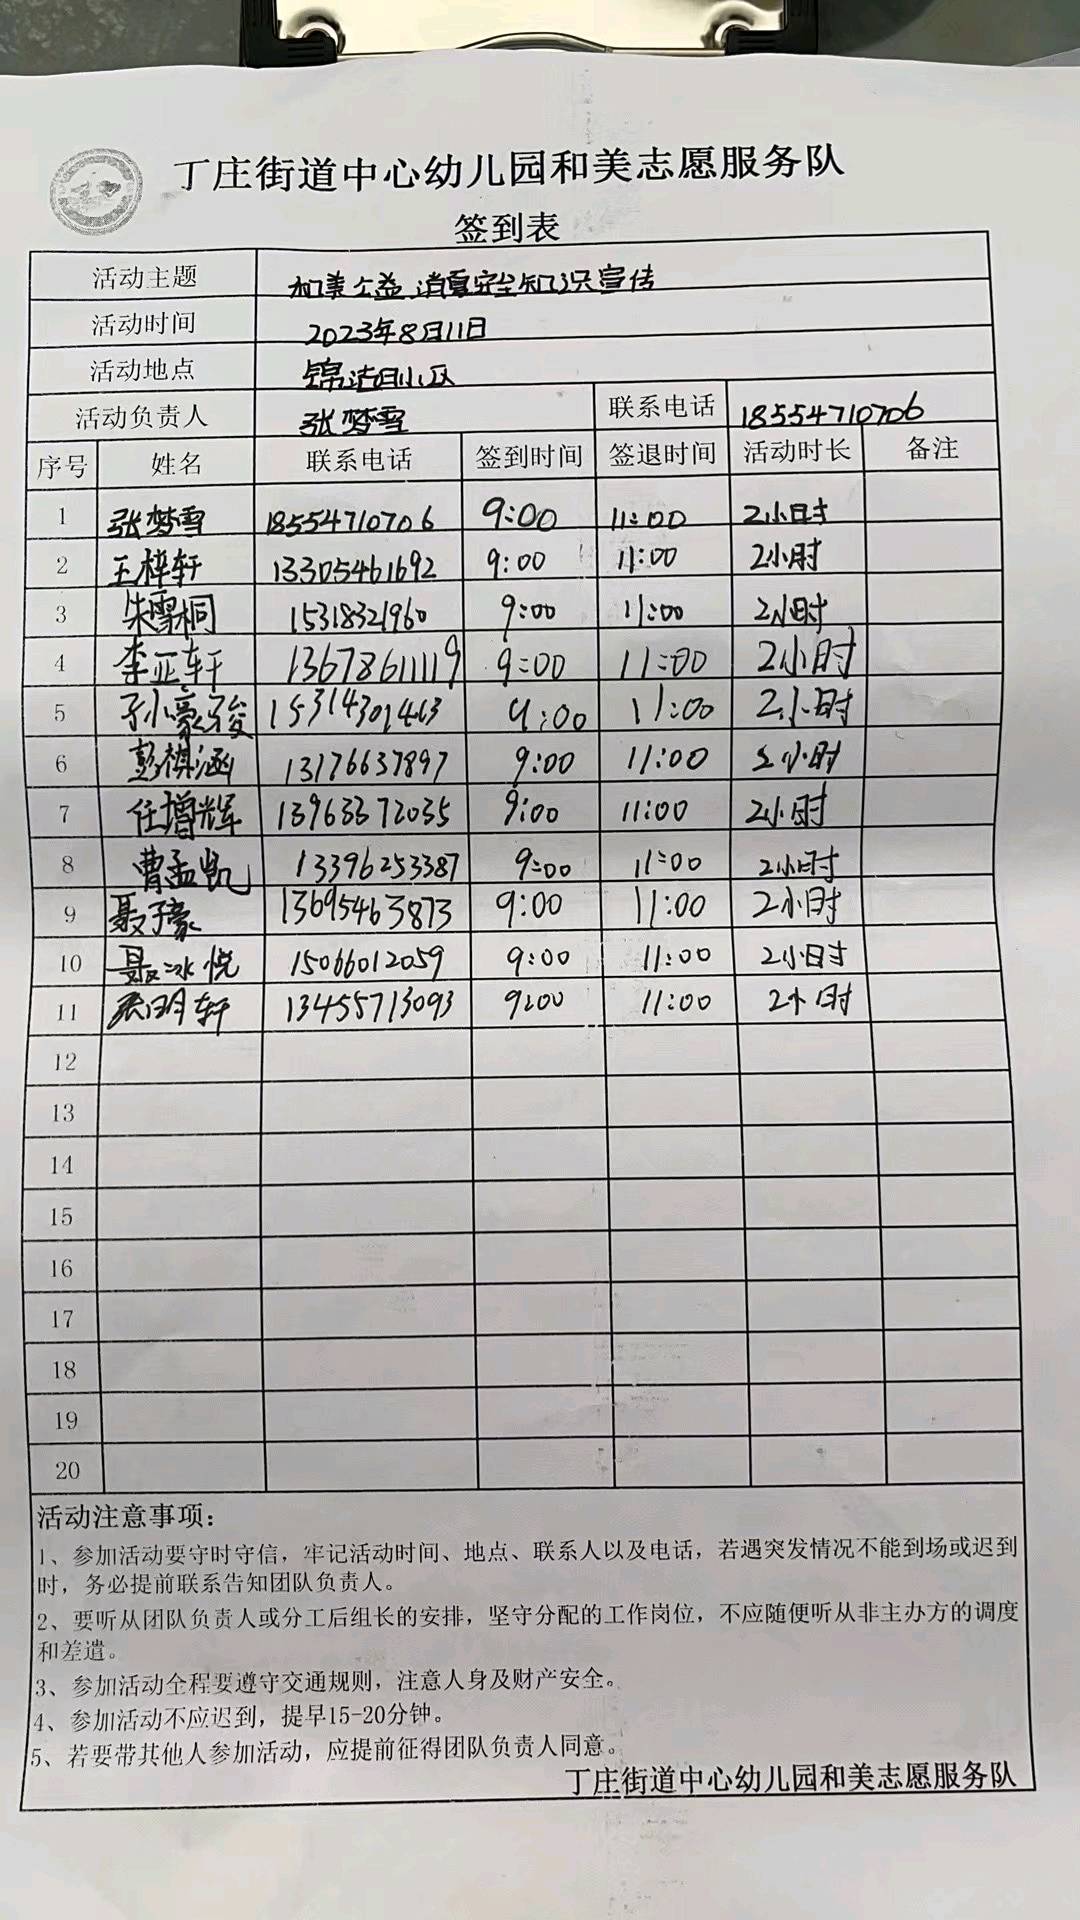 丁庄街道中心幼儿园和美志愿服务队
签到表
活动主题 和美公益，消夏安全知识宣传
活动时间 2023年8月11日
活动地点 锦洁园小区
活动负责人 张梦雪 联系电话 18554710706
序号 姓名 联系电话 签到时间 签退时间 活动时长 备注
1 张梦雪 18554710706 9:00 11:00 2小时
2 王梓轩 13305461692 9:00 11:00 2小时
3 朱雪桐 15318321960 9:00 11:00 2小时
4 李亚轩 13678611119 9:00 11:00 2小时
5 孙豪骏 15314301463 9:00 11:00 2小时
6 彭祺涵 13176637897 9:00 11:00 2小时
7 任增辉 13963372035 9:00 11:00 2小时
8 曹孟凯 13396253387 9:00 11:00 2小时
9 聂子豪 13695463873 9:00 11:00 2小时
10 聂冰悦 15066012059 9:00 11:00 2小时
11 明轩 13455713093 9:00 11:00 2小时
12
13
14
15
16
17
18
19
20
活动注意事项：
1、参加活动要守时守信，牢记活动时间、地点、联系人以及电话，若遇突发情况不能到场或迟到
时，务必提前联系告知团队负责人。
2、要听从团队负责人或分工后组长的安排，坚守分配的工作岗位，不应随便听从非主办方的调度
和差遣。
3、参加活动全程要遵守交通规则，注意人身及财产安全。
4、参加活动不应迟到，提早15-20分钟。
5、若要带其他人参加活动，应提前征得团队负责人同意。
丁庄街道中心幼儿园和美志愿服务队